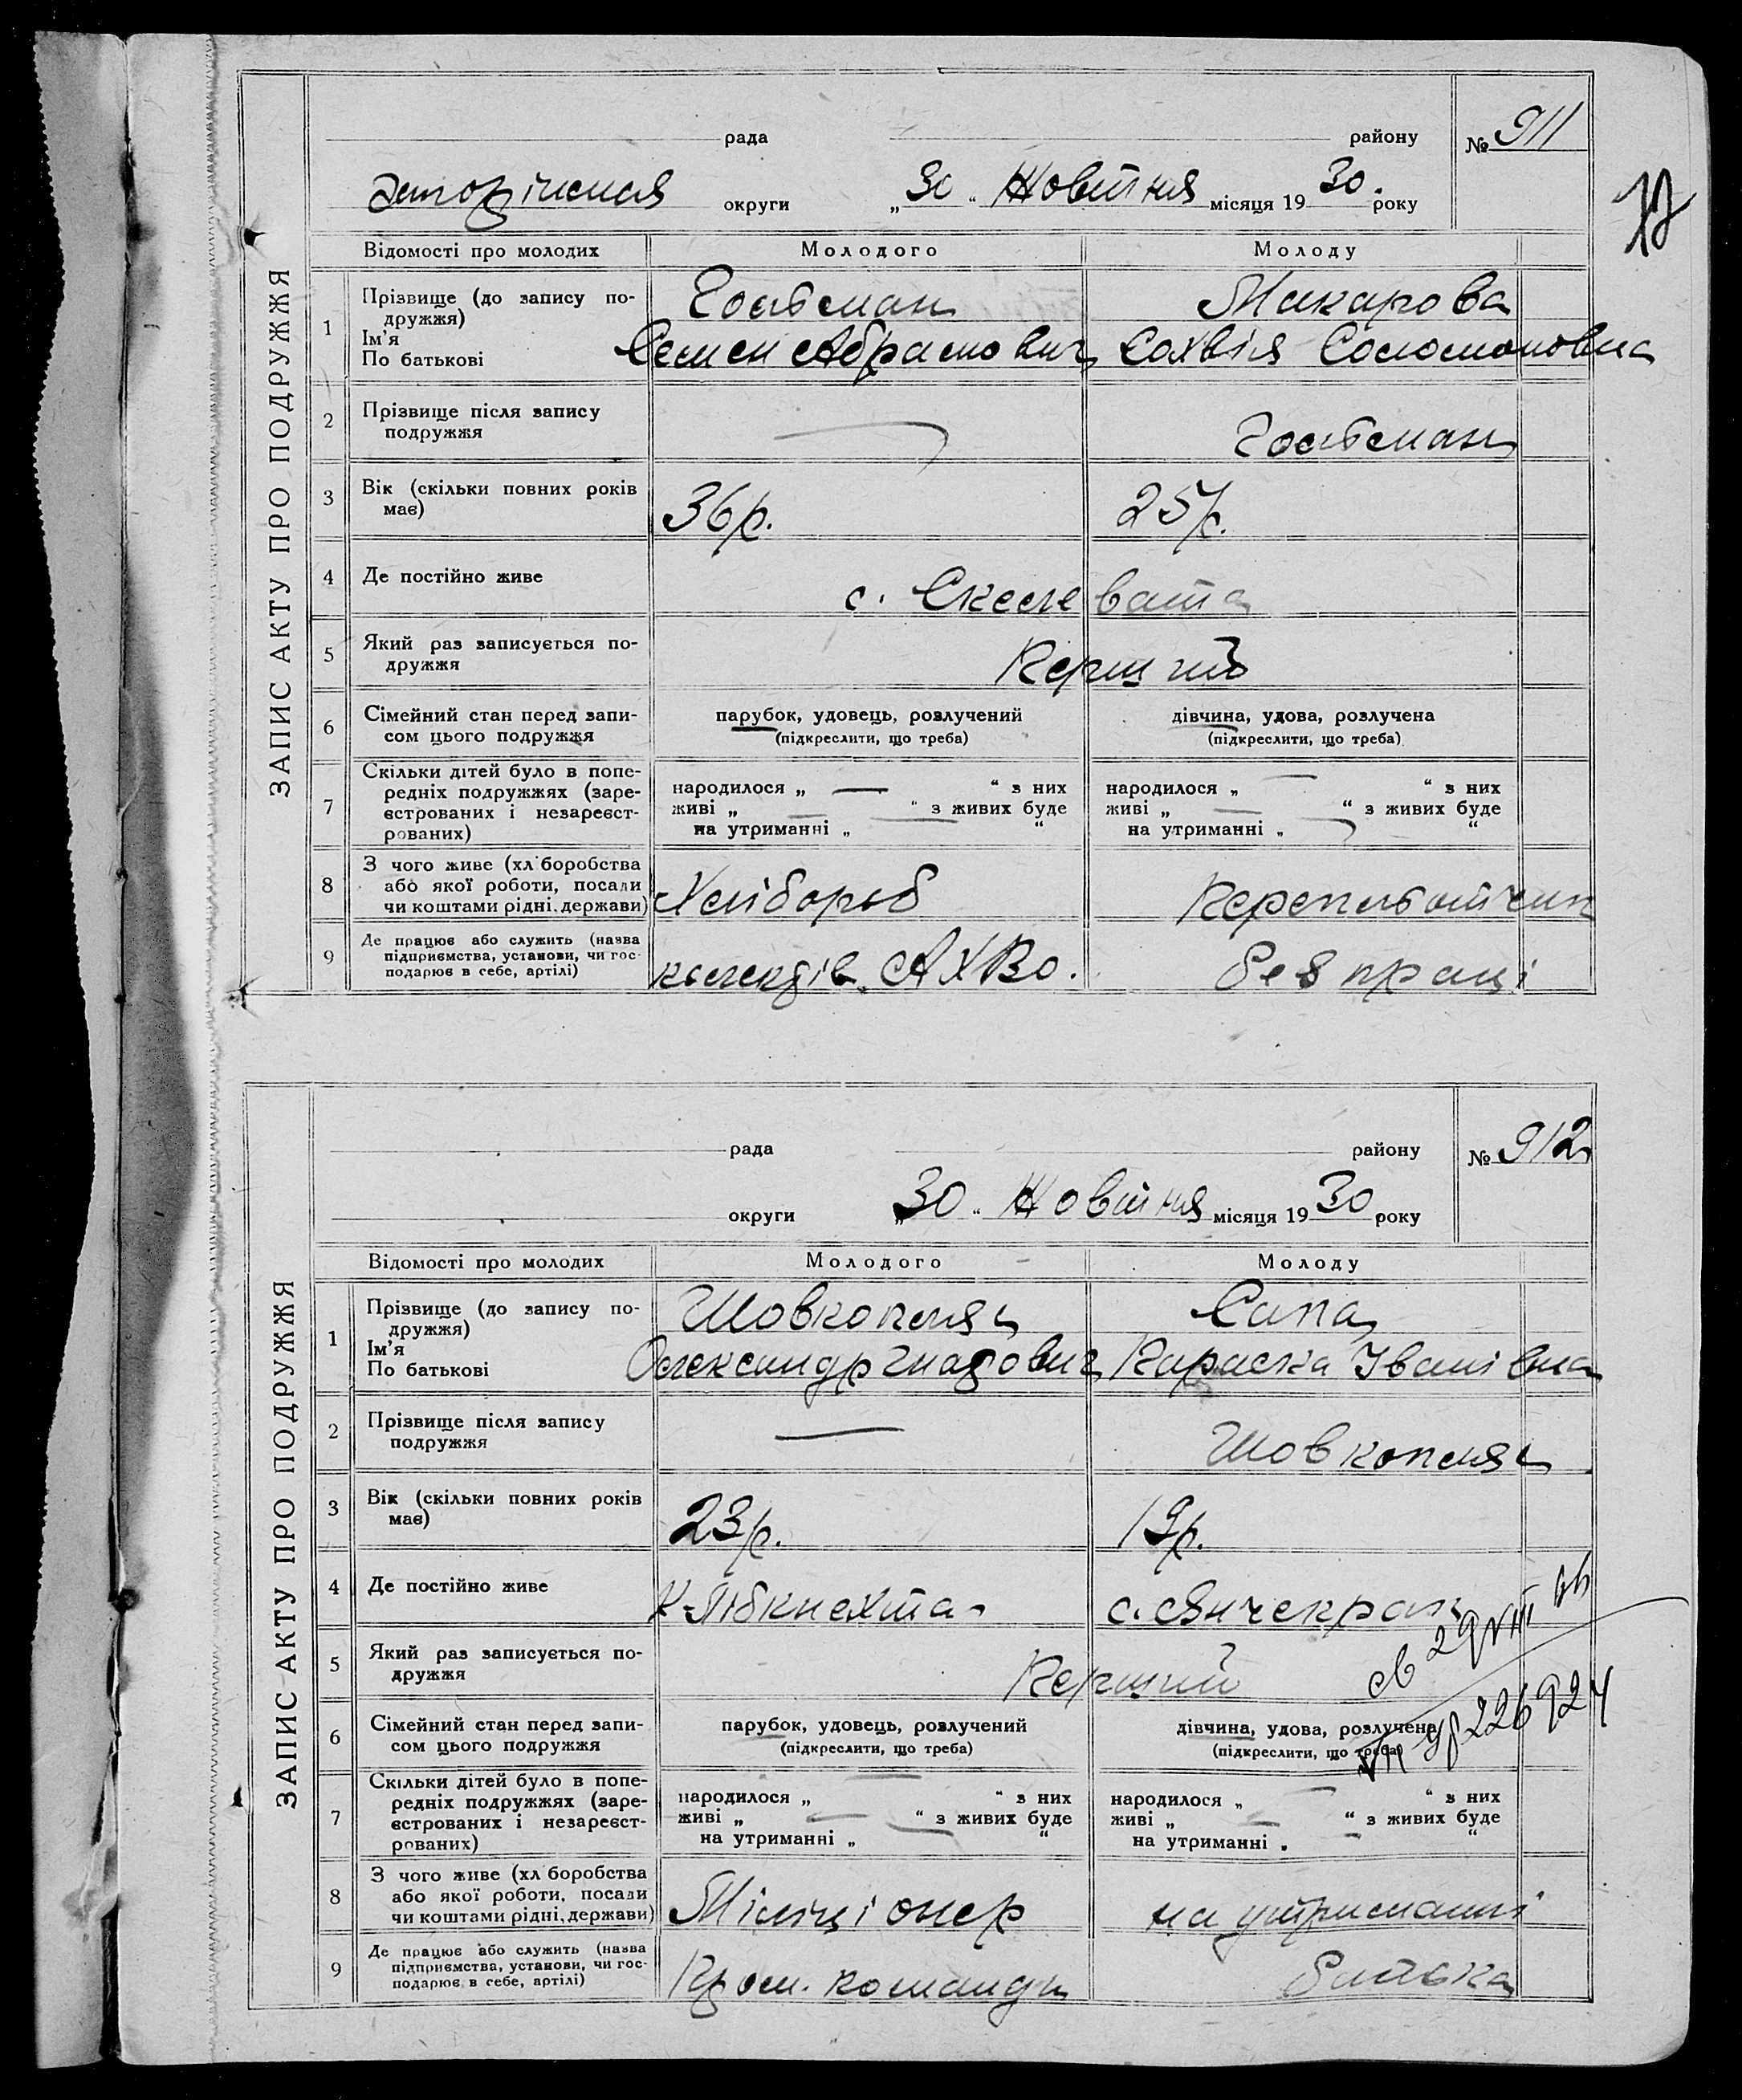 ЗАПИС АКТУ ПРО ПОДРУЖЖЯ
рада району № 911
округи „30“ Жовтня місяця 1930. року
Відомості про молодих Молодого Молоду
1 Прізвище (до запису по-
дружжя) Макарова
Ім’я
По батькові Семен Абрамович Сохвія Соломоновна
2 Прізвище після запису
подружжя —
3 Вік (скільки повних років
має) 36 р. 25 р.
4 Де постійно живе с. Скелевата
5 Який раз записується по-
дружжя Перший
6 Сімейний стан перед запи-
сом цього подружжя парубок, удовець, розлучений дівчина, удова, розлучена
(підкреслити, що треба) (підкреслити, що треба)
7 Скільки дітей було в попе-
редніх подружжях (заре-
єстрованих і незареєст-
рованих)
народилося „ — “ з них народилося „ — “ з них
живі „ — “ з живих буде живі „ — “ з живих буде
на утриманні „ — “ на утриманні „ — “
8 З чого живе (хліборобства
або якої роботи, посади
чи коштами рідні, держави) Хлібороб
9 Де працює або служить (назва
підприємства, установи, чи гос-
подарює в себе, артілі) без праці
ЗАПИС АКТУ ПРО ПОДРУЖЖЯ
рада району № 912
округи „30“ Жовтня місяця 1930 року
Відомості про молодих Молодого Молоду
1 Прізвище (до запису по-
дружжя) Шовкопляс Сапа
Ім’я
По батькові Олександр Гнатович Параска Іванівна
2 Прізвище після запису
подружжя — Шовкопляс
3 Вік (скільки повних років
має) 23 р. 19 р.
4 Де постійно живе К-Лібкнехта с. Янчекрак
5 Який раз записується по-
дружжя Перший
св 29 VIII
226924
6 Сімейний стан перед запи-
сом цього подружжя парубок, удовець, розлучений дівчина, удова, розлучена
(підкреслити, що треба) (підкреслити, що треба)
7 Скільки дітей було в попе-
редніх подружжях (заре-
єстрованих і незареєст-
рованих)
народилося „ — “ з них народилося „ — “ з них
живі „ — “ з живих буде живі „ — “ з живих буде
на утриманні „ — “ на утриманні „ — “
8 З чого живе (хліборобства
або якої роботи, посади
чи коштами рідні, держави) Міліціонер на утриманні
9 Де працює або служить (назва
підприємства, установи, чи гос-
подарює в себе, артілі) команди батька